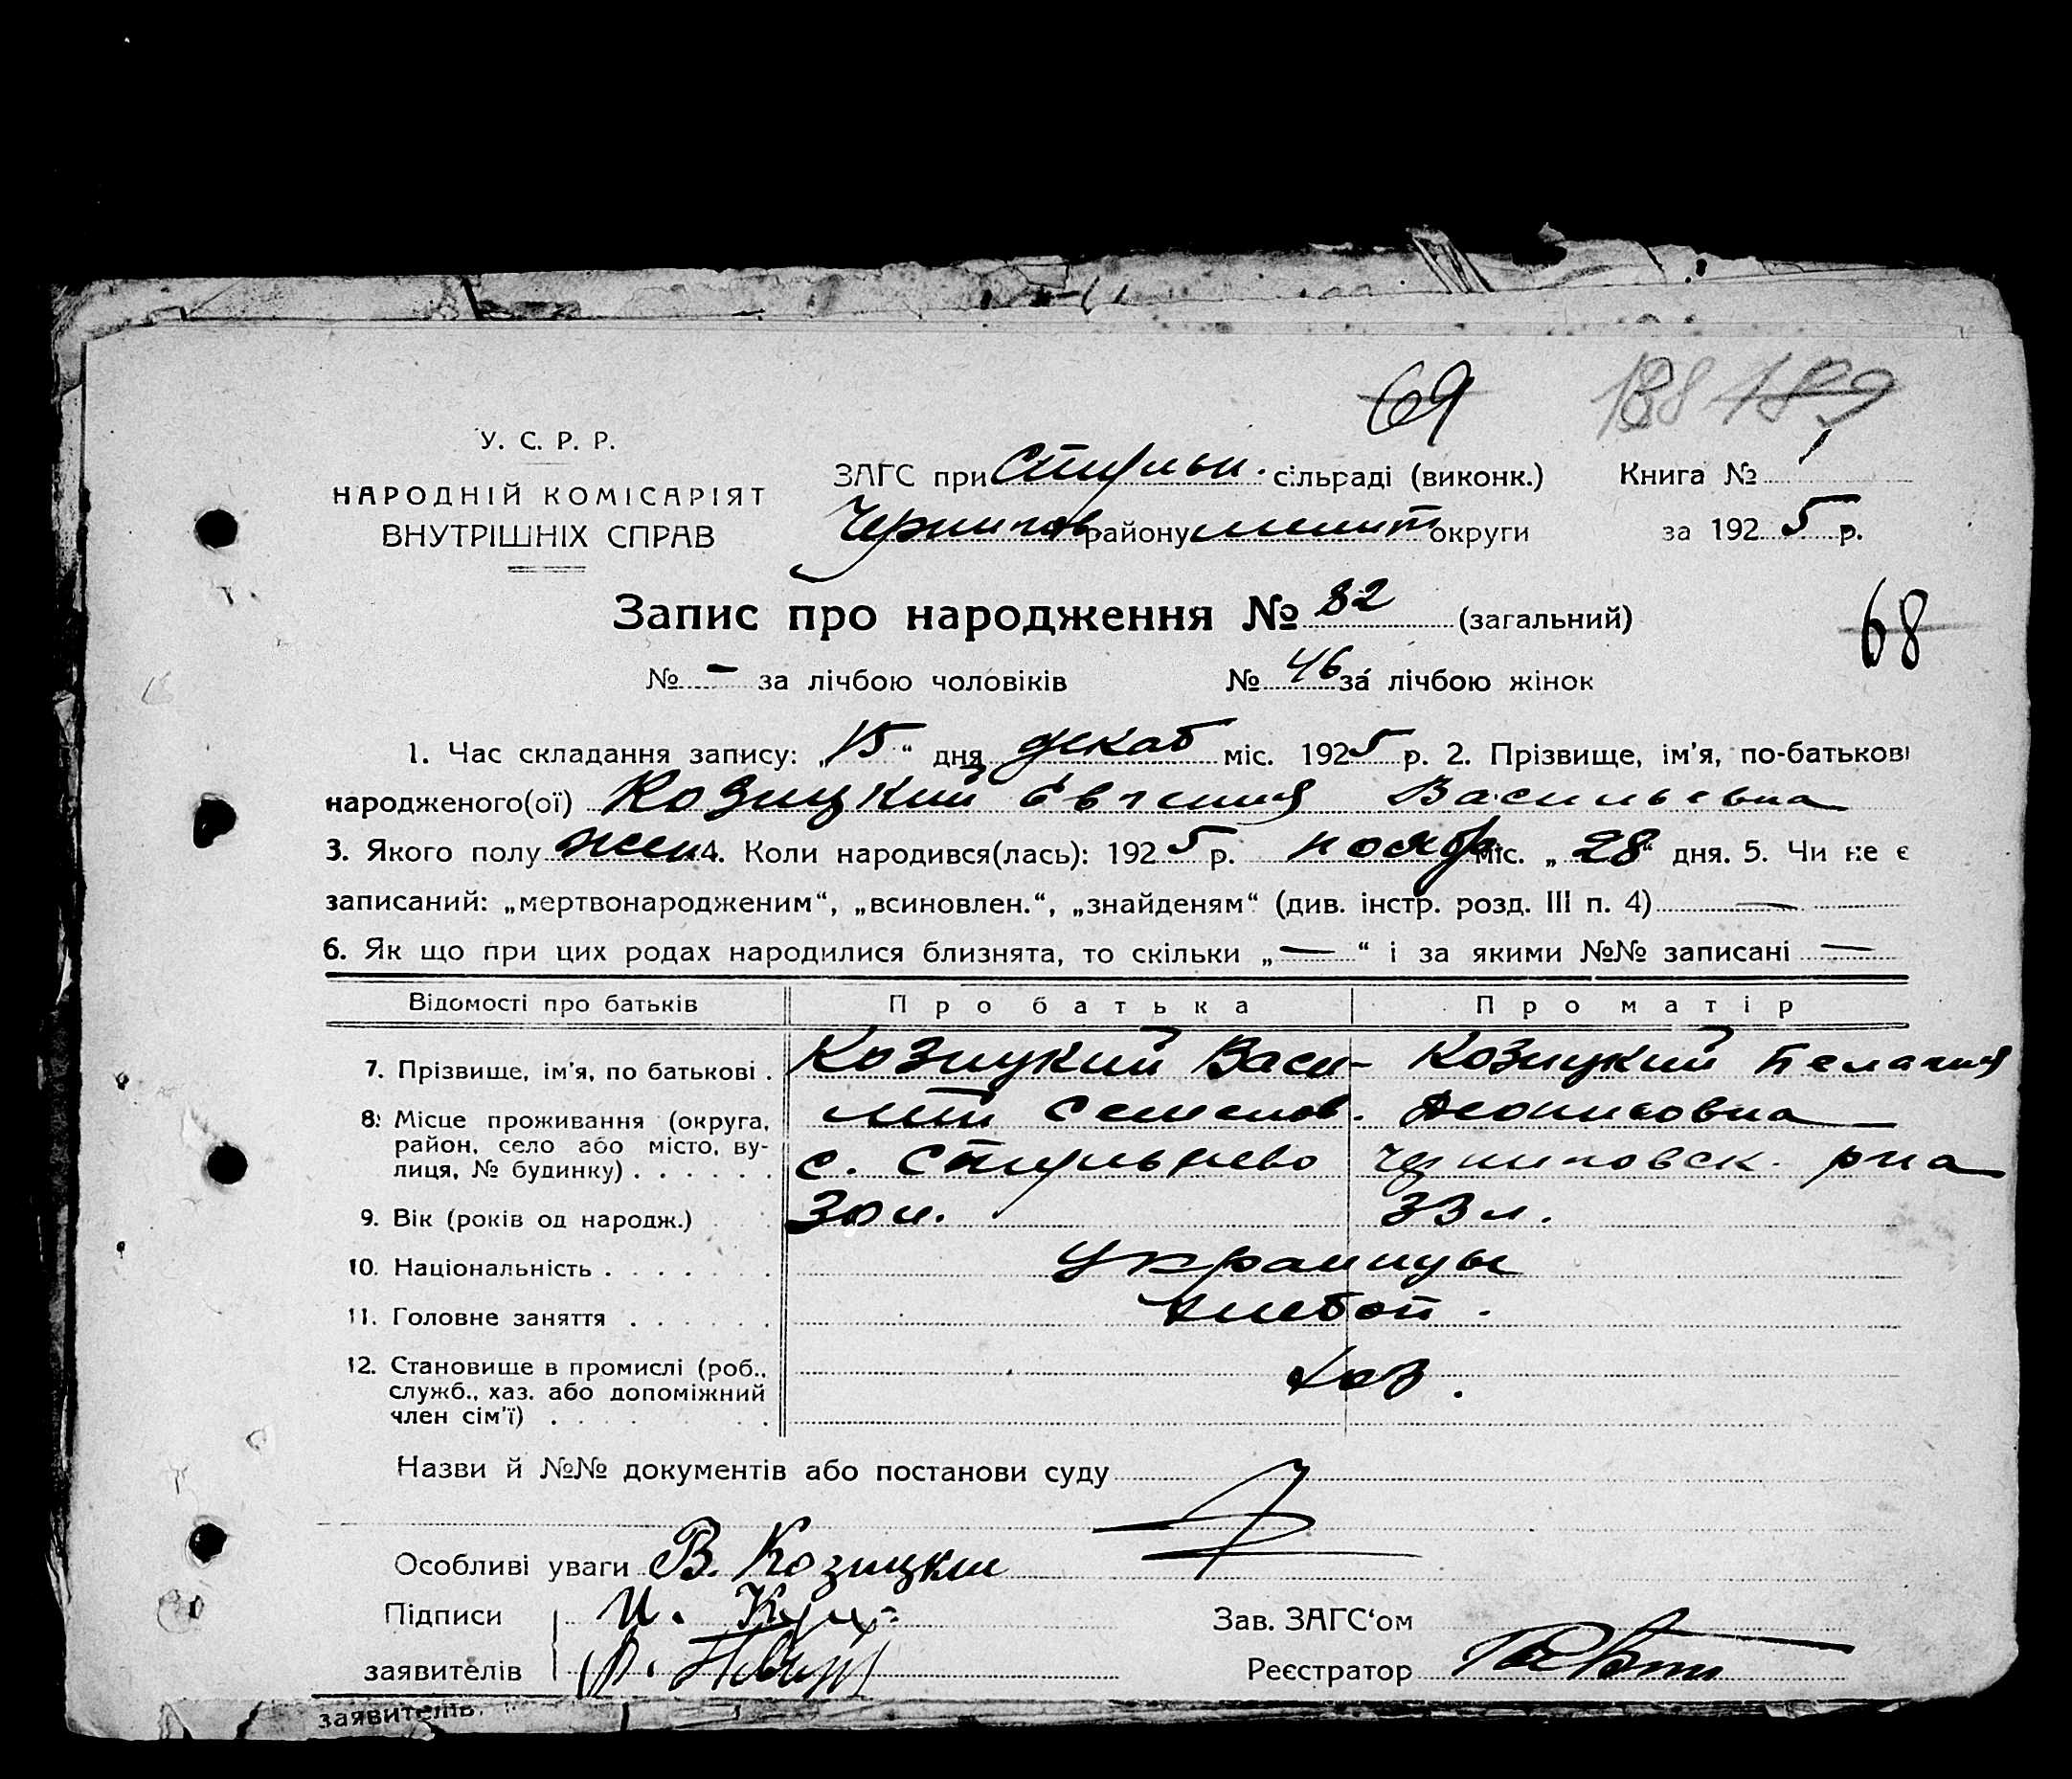 69 188 189
У. С. Р. Р.
НАРОДНІЙ КОМІСАРІЯТ
ВНУТРІШНІХ СПРАВ
ЗАГС при сільраді (виконк.) Книга № 1
Чернигов району мелит округи за 1925 р.
Запис про народження № 82 (загальний)
68
№ — за лічбою чоловіків № 46 за лічбою жінок
1. Час складання запису: „15“ дня декаб міс. 1925 р. 2. Прізвище, ім'я, по-батькові
народженого(ої) Козицкий Евгения Васильевна
3. Якого полу жен 4. Коли народився(лась): 1925 р. ноябр міс. „28“ дня. 5. Чи не є
записаний: „мертвонародженим“, „всиновлен.“, „знайденям“ (див. інстр. розд. III п. 4) —
6. Як що при цих родах народилися близнята, то скільки „—“ і за якими №№ записані —
Відомості про батьків Про батька Про матір
7. Прізвище, ім'я, по батькові . Козицкий Васи- Козицкий Пелагия
8. Місце проживання (округа, район, село або місто, вулиця, № будинку) . . . . . . лий Семенов. Денисовна
с. Черниговск. рна
9. Вік (років од народж.) 30 л. 33 л.
10. Національність . . . . . . Украинцы
11. Головне заняття . . . . . . хлебоп.
12. Становище в промислі (роб., служб., хаз. або допоміжний член сім'ї) . . . . хоз.
Назви й №№ документів або постанови суду
Особливі уваги В. Козицки
Підписи И.
Зав. ЗАГС'ом
заявителів
Реєстратор
заявителів.